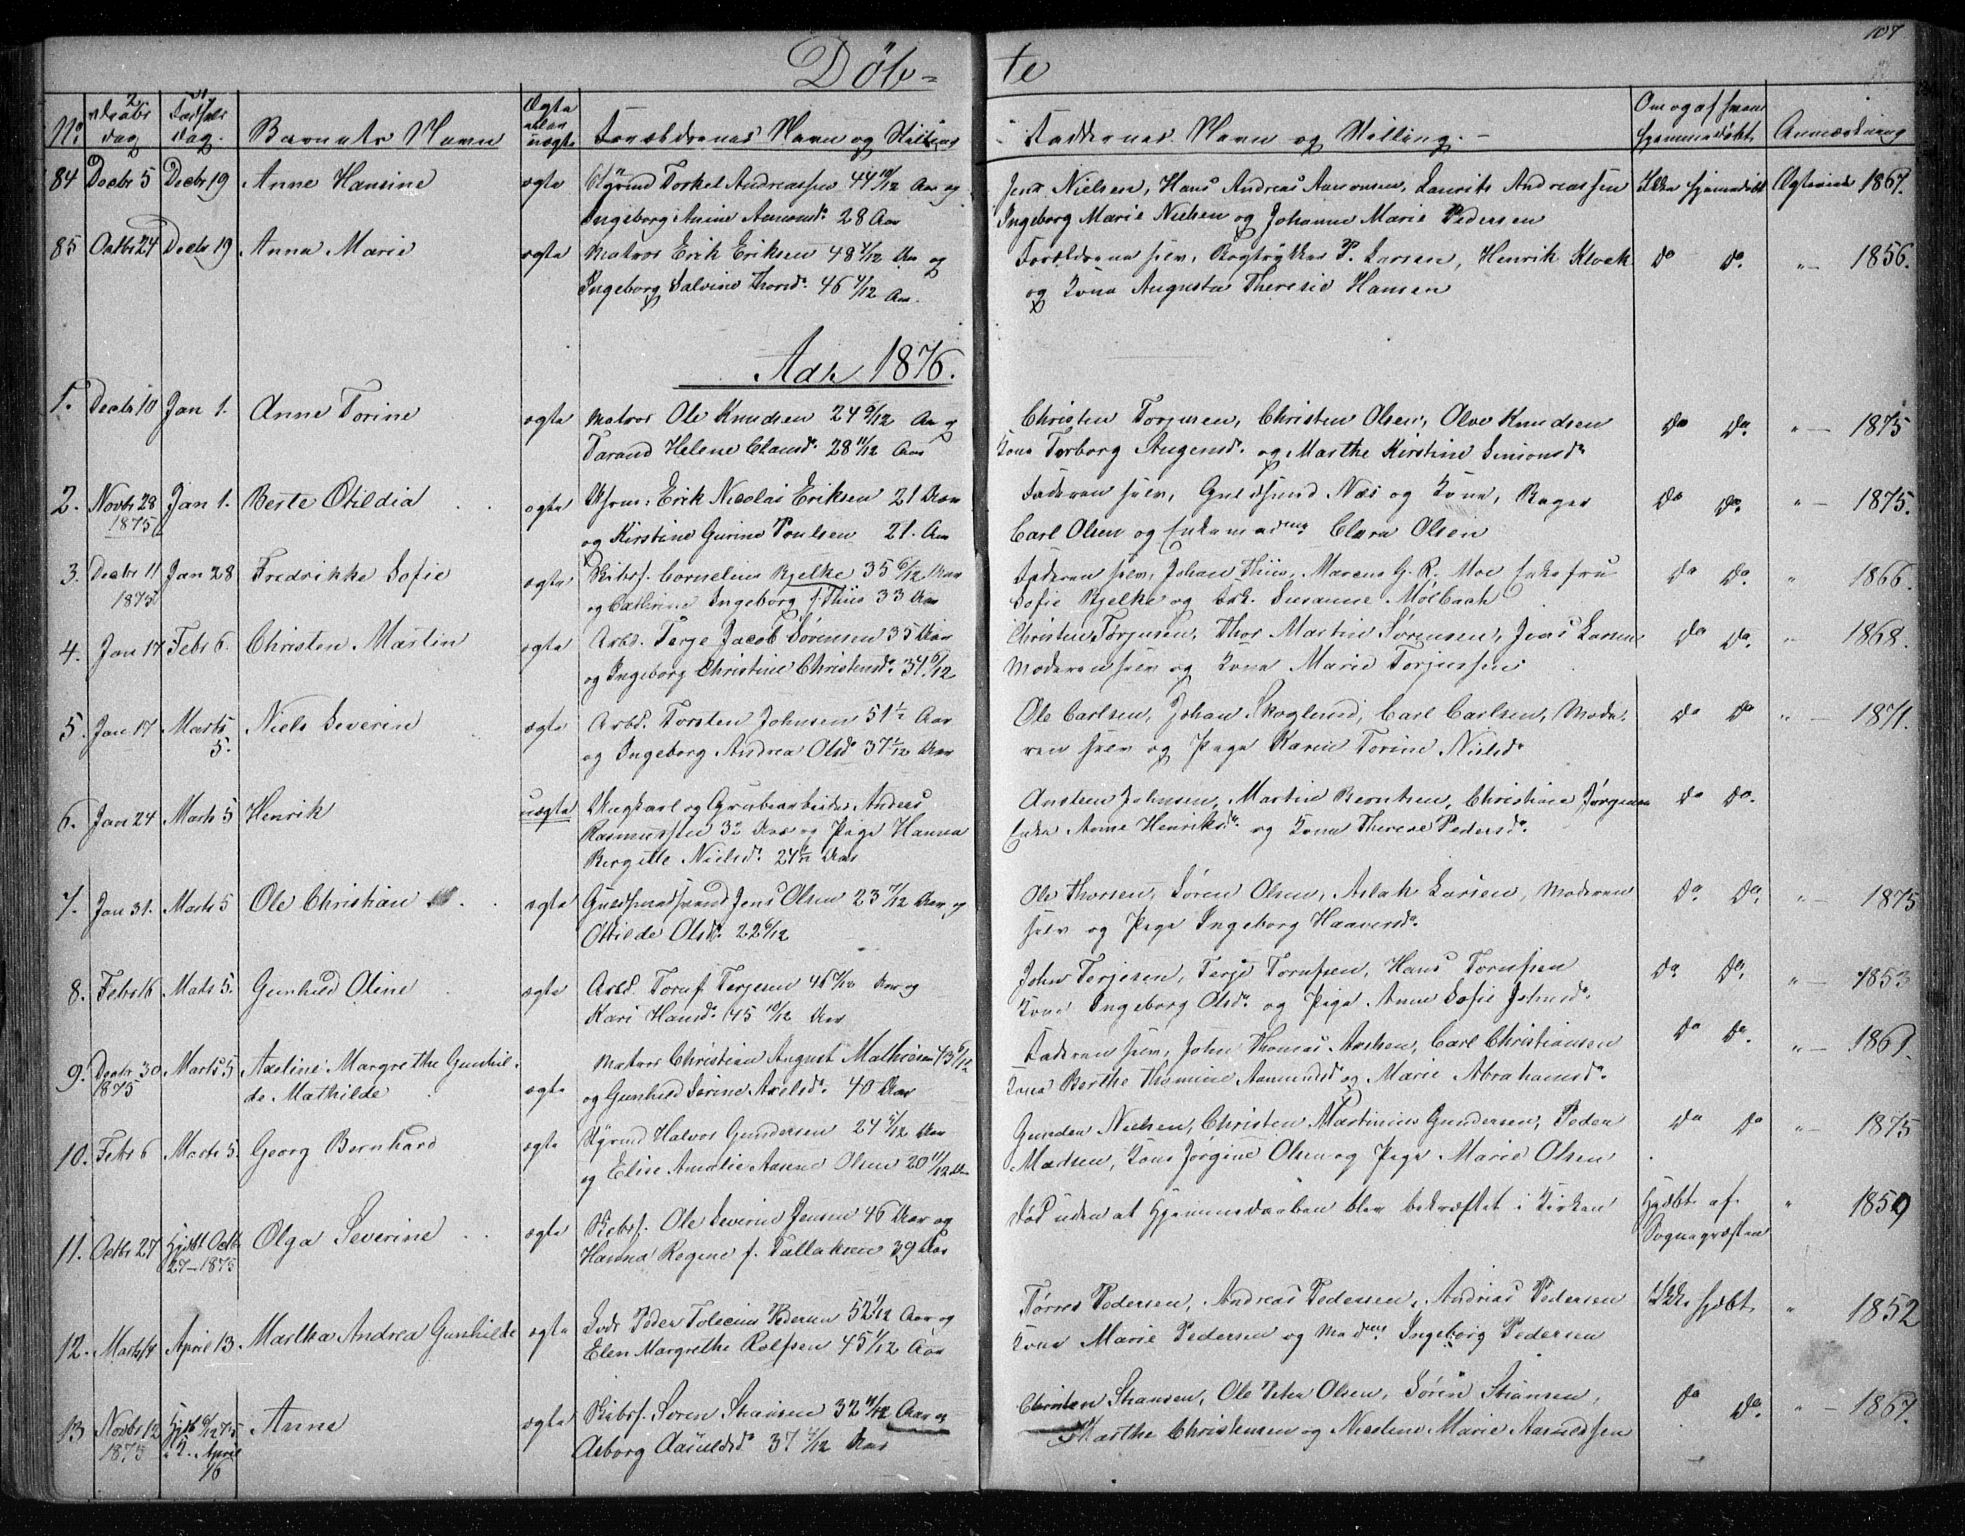 107
Døb-
te
No
Daabs dag
Fødsels dag.
Barnets Navn
Ægte eller uægte
Forældrenes Navn og Stilling
Faddernes Navn og Stilling.
Om og af hvem hjemmedøbt
Anmærkning
84 Decbr 5 Decbr 19 Anne Hansine ægte Styrmd Torkel Andreassen 44 10/12 Aar og
Ingeborg Anine Aamonsd. 28 Aar
Jens Nielsen, Hans Andreas Aanonsen, Laurits Andreassen
Ingeborg Marie Nielsen og Johanne Marie Pedersen
Ikke hjemmedøbt Ægteviede 1867.
85 Octbr 24 Decbr 19 Anna Marie ægte Matros Erik Eriksen 48 Aar og
Ingeborg Salvine Thorsd. 46 Aar.
Forældrene selv, Bogtrykker P. Larsen, Henrik Klock
og Kone Augusta Theresie Hansen
Do Do. 1856.
Aar 1876.
1. Decbr 10 Jan 1. Anne Torine ægte Matros Ole Knudsen 24 Aar og
Tarand Helene Olausd. 28 11/12 Aar
Christen Torjusen, Christen Olsen, Olve Knudsen
Kone Torborg Augensd. og Marthe Kirstine Simonsd.
Do Do. 1875
2. Novbr 28 1875 Jan 1. Berte Otildia ægte Erik Nicolai Eriksen 21 Aar
og Kirstine Gurine Poulsen 21. Aar
Faderen selv, Guldsmed Næs og Kone, Bager
Carl Olsen og Enkemadme Clara Olsen
Do Do. 1875.
3. Decbr 11 1875 Jan 28 Fredrikke Sofie ægte Skibsf. Cornelius Bjelke 35 6/12 Aar
og Cathrine Ingeborg f. Thiis 33 Aar
Faderen selv, Johan Thiis, Marcus G. R. Moe Enkefru
Sofie Bjelke og Susanne Mølbach
Do Do. 1866.
4. Jan 17 Febr 6. Christen Martin ægte Arbd. Terje Jacob Sørensen 35 Aar
og Ingeborg Christine Christensd. 31 6/12
Christen Torjusen, Thor Martin Sørensen, Jens Larsen
Moderen selv og Kone Marie Torjussen.
Do Do. 1868.
5. Jan 17 Marts 5. Niels Severin ægte Arbd. Torsten Johnsen 51 ½ Aar
og Ingeborg Andrea Olsd. 37 Aar
Ole Carlsen, Johan Skoglund, Carl Carlsen, Mode-
ren selv og Pige Karen Torine Nielsd.
Do Do 1871.
6. Jan 24 Marts 5 Henrik uægte Ungkarl og Grubearbeider Anders
Rasmussen 32 Aar og Pige Hanna
Bergitte Nielsd. 24 Aar
Austeen Johnsen, Martin Berntsen, Christine Jørgensen
Enke Anne Henriksd. og Kone Therese Pedersd.
Do Do.
7. Jan 31. Marts 5 Ole Christian ægte Guldsmedsvend Jens Olsen 23 Aar og
Otilde Olsd. 22 6/12
Ole Thorsen, Søren Olsen, Aslak Larsen, Moderen
selv og Pige Ingeborg Haavorsd.
Do. Do. 1875
8. Febr 16 Marts 5. Gunhild Oline ægte Arbd. Toruf Terjesen 46 Aar og
Kari Hansd. 45 10/12 Aar
John Terjesen, Terje Torufsen, Hans Torufsen
Kone Ingeborg Olsd. og Pige Anne Sofie Johnsd.
Do Do. 1853
9. Decbr 30 1875 Marts 5 Axeline Margrethe Gunhil-
de Mathilde ægte Matros Christian August Mathisen 43 6/12
og Gunhild Serine Axelsd. 40 Aar
Faderen selv, John Thomas Axelsen, Carl Christiansen
Kone Berthe Thomine Aamundsd og Marie Abrahamsd.
Do Do. 1861.
10. Febr 6 Marts 5. Georg Bernhard ægte Styrmd Halvor Gundersen 24 Aar
og Elise Amalie Aasene Olsen 20 11/12 Aar
Gunder Nielsen, Christen Martinius Gundersen, Peder
Madsen, Kone Jørgine Olsen og Pige Marie Olsen
Do Do 1875
11. Octbr 27 Hjdbt Octb. 27-1875 Olga Severine ægte Skibsf. Ole Severin Jensen 46 Aar og
Hanna Regine f. Tallaksen 39 Aar
død uden at Hjemmedaaben blev bekræftet i Kirken
Hjdbt af Sognepræsten 1859
12. Marts 4 April 13. Martha Andrea Gunhilde ægte Lods Peder Tolecius Pedersen 52 Aar og
Elen Margrethe Rolfsen 45 Aar
Tørres Pedersen, Andreas Pedersen, Andrias Pedersen
Kone Marie Pedersen og Madme Ingeborg Pedersen
Ikke hjdbt 1852
13 Novbr 12 1875 Hjdb 6/12 75 April 76 Anne ægte Skibsf. Søren Stiansen 32 Aar og
Asborg Aanildsd. 37 Aar
Christen Stiansen, Ole Peter Olsen, Søren Stiansen,
Marthe Christensen og Nicoline Marie Aanildsen
Do Do. 1867.